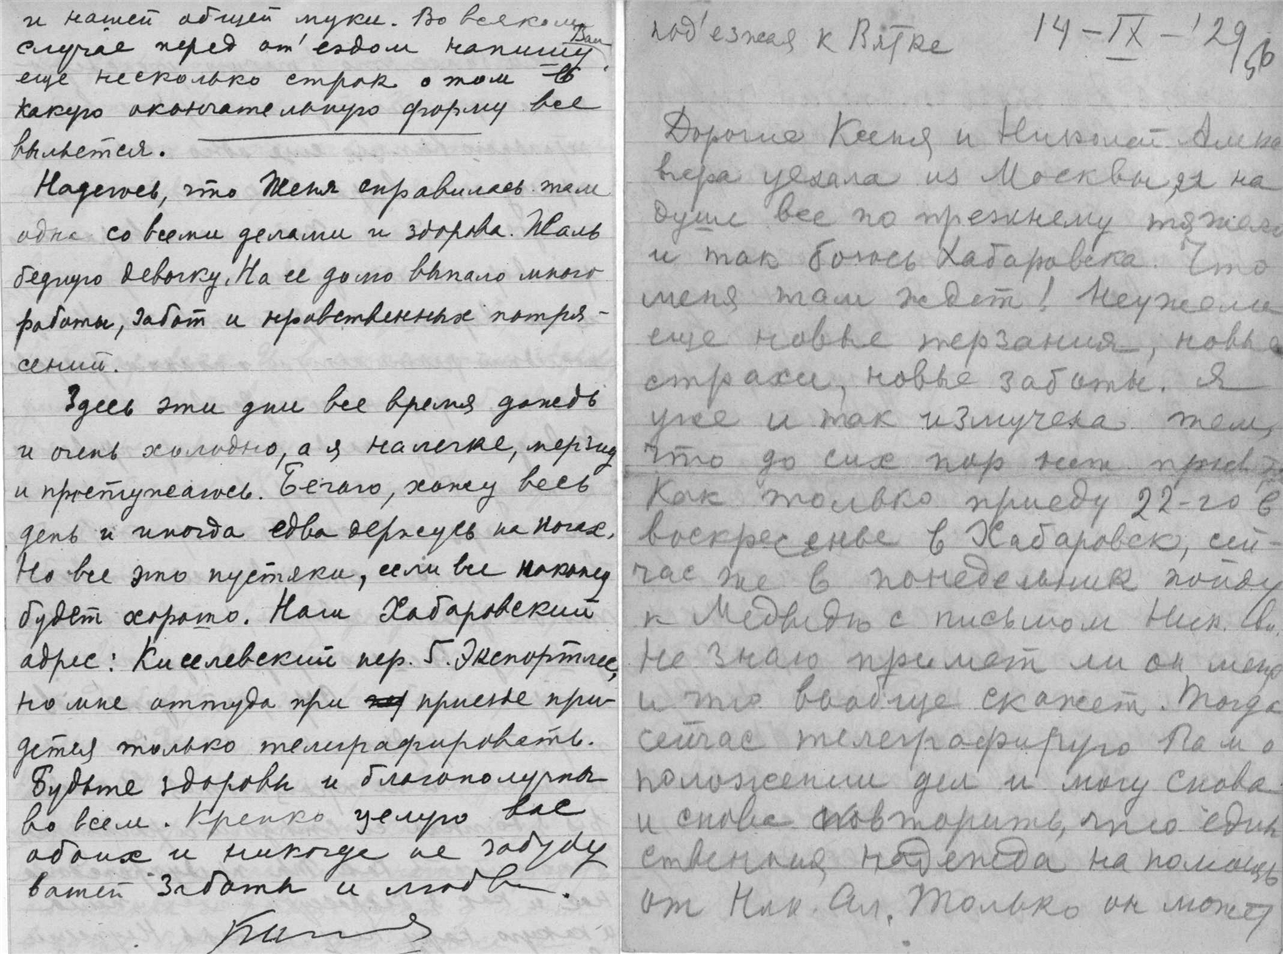 и нашей общей муки. Во всяком
случае перед от'ездом напишу Вам
еще несколько строк о том в
какую окончательную форму все
выльется.
Надеюсь, что Женя справилась там
одна со всеми делами и здорова. Жаль
бедную девочку. На ее долю выпало много
работы, забот и нравственных потря-
сений.
Здесь эти дни все время дождь
и очень холодно, а я налегке, мерзну
и простужаюсь. Бегаю, хожу весь
день и иногда едва держусь на ногах.
Но все это пустяки, если все наконец
будет хорошо. Наш Хабаровский
адрес: Киселевский пер. 5. Экспортлес,
но мне оттуда при приезде при-
дется только телеграфировать.
Будьте здоровы и благополучны
во всем. Крепко целую вас
обоих и никогда не забуду
вашей заботы и любви.
под'езжая к Вятке 14-IX-'29
Дорогие Ксеня и Николай
вчера уехала из Москвы, на
душе все по прежнему тяжело
и так боюсь Хабаровска. Что
меня там ждет! Неужели
еще новые терзания, новые
страхи, новые заботы. Я
уже и так измучена тем,
что до сих пор нет
Как только приеду 22-го в
воскресенье в Хабаровск, сей-
час же в понедельник пойду
к Медведю с письмом Ник.
Не знаю примет ли он меня
и что вообще скажет. Тогда
сейчас телеграфирую Вам о
положении дел и могу снова
и снова повторить, что един
ственная надежда на помощь
от Ник. Ал. Только он может